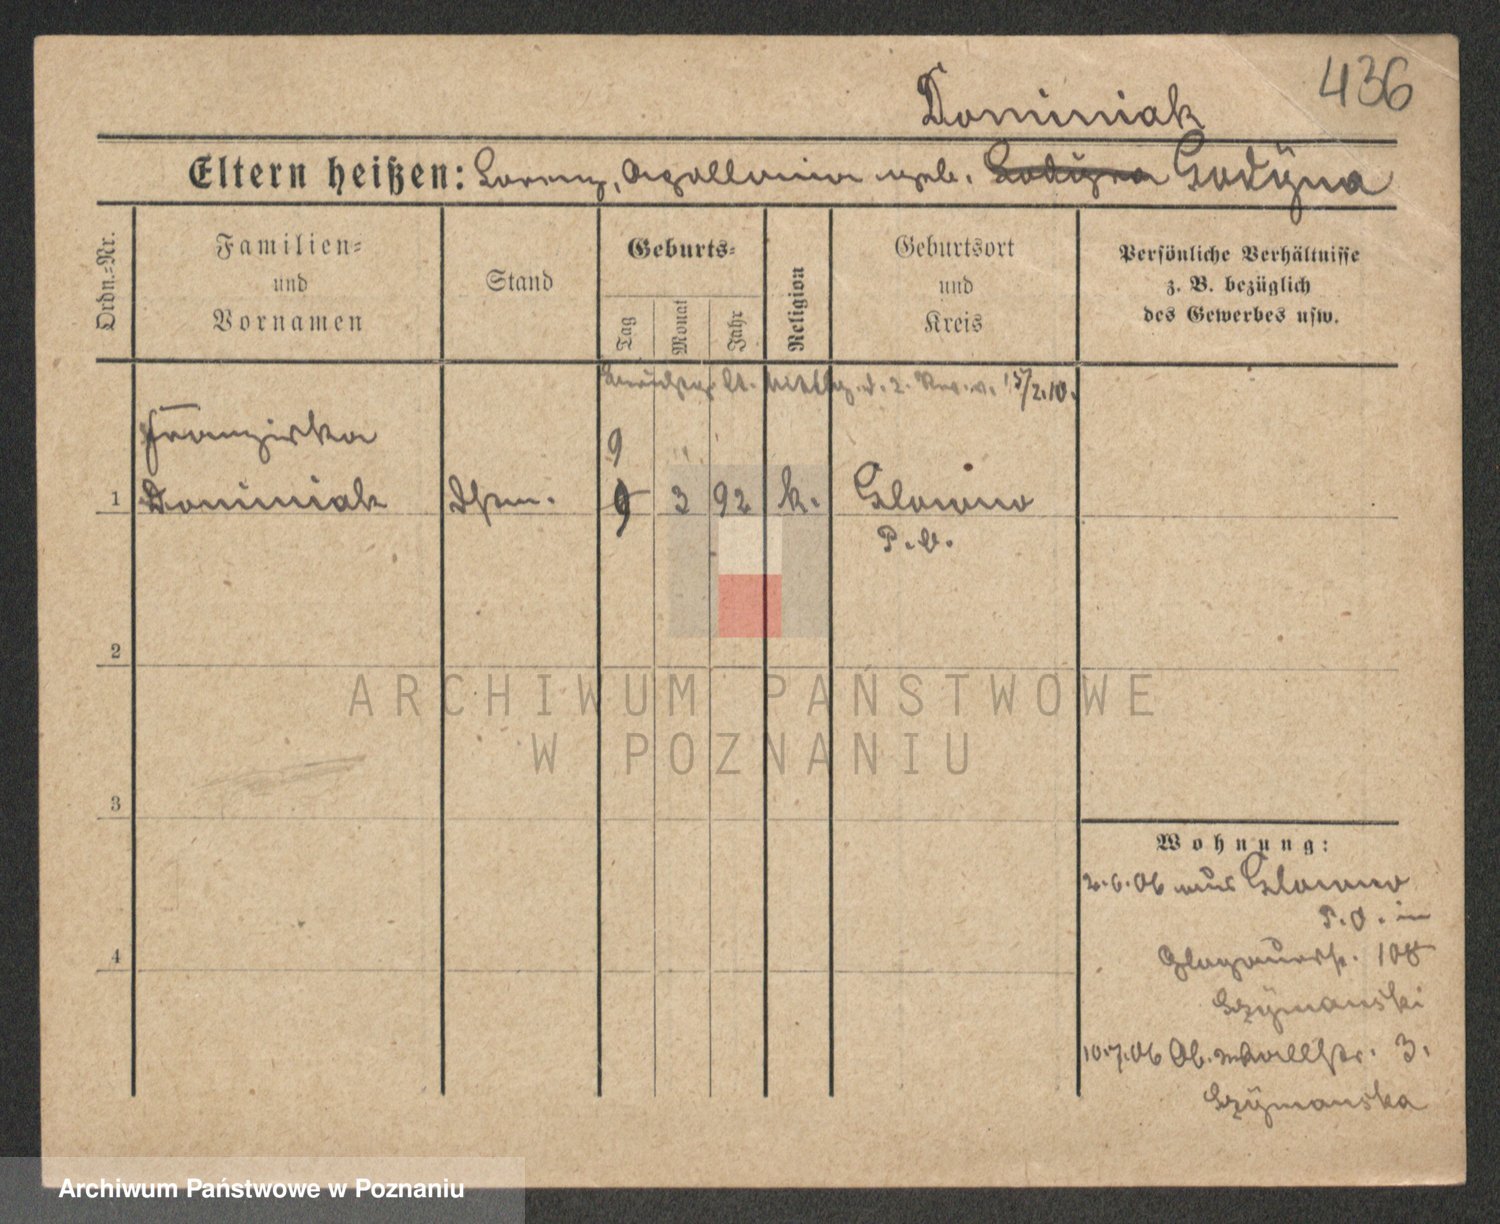 436
Dominiak
Eltern heißen: Lorenz, Apollonia geb. Godÿna
Ordn.-Nr.
Familien-
und
Vornamen
Stand
Geburts-
Tag
Monat
Jahr
Religion
Geburtsort
und
Kreis
Persönliche Verhältnisse
z. B. bezüglich
des Gewerbes usw.
lt. d. 2. Rev. v. 15/2.10.
Franziska
9
1 Dominiak 9 3 92 k. Glowno
P. O.
2
3
4
Wohnung:
2.6.06 aus Glowno
P. O. in
Glogauerstr. 108
Szÿmanski
10.7.06 Ob. Wallstr. 3.
Szÿmanska
ARCHIWUM PAŃSTWOWE
W POZNANIU
Archiwum Państwowe w Poznaniu